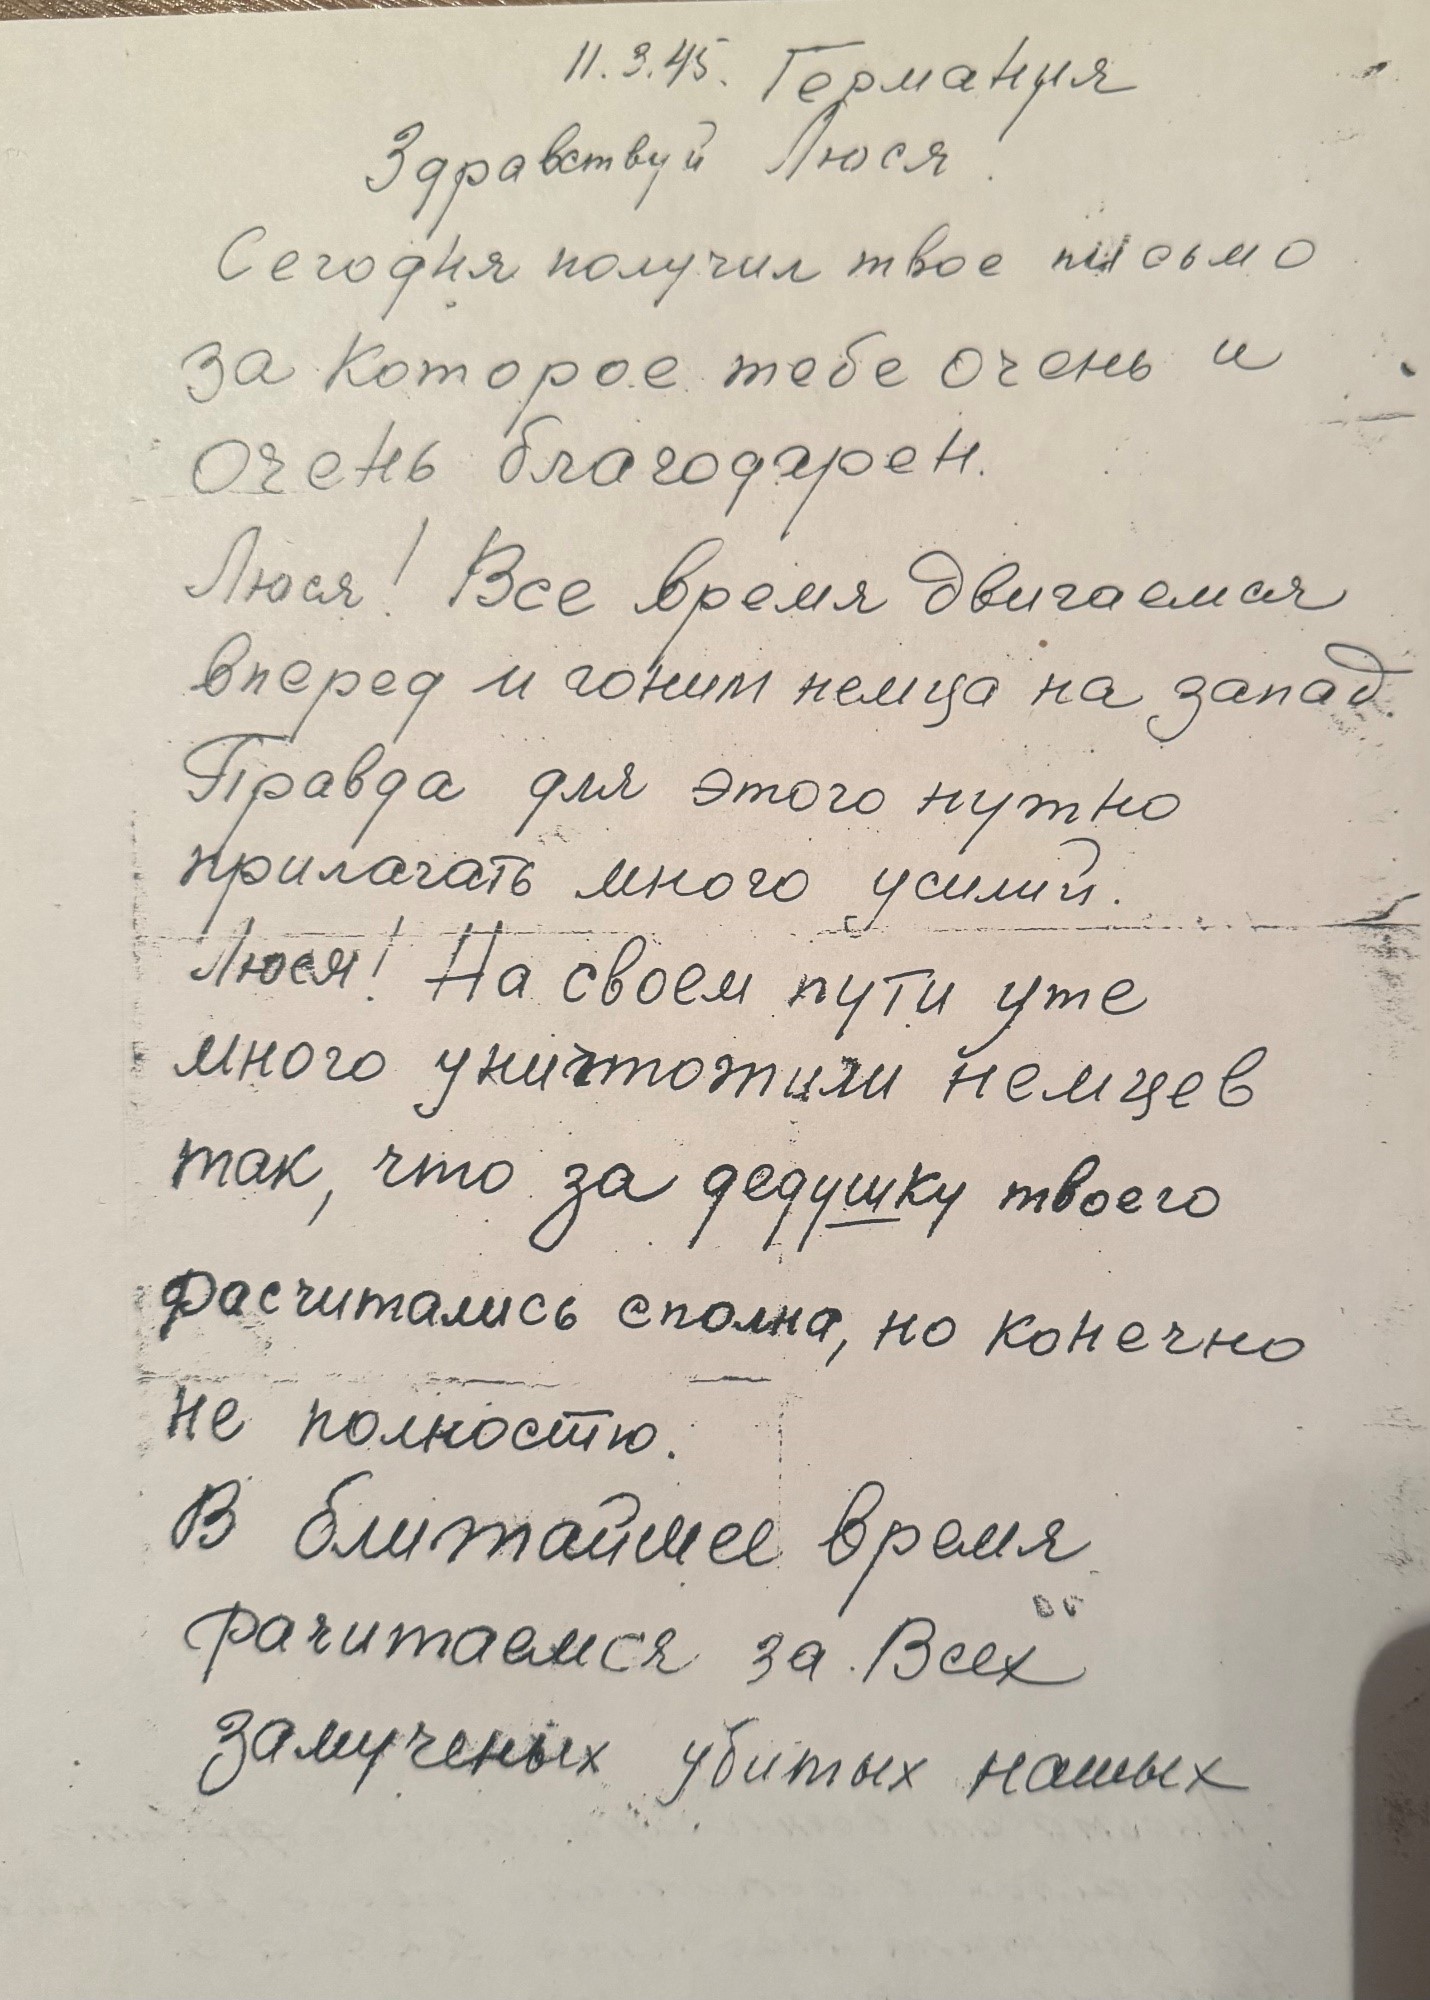 11.3.45. Германия
Здравствуй Люся.
Сегодня получил твое письмо
за которое тебе очень и
очень благодарен.
Люся! Все время двигаемся
вперед и гоним немца на запад.
Правда для этого нужно
прилагать много усилий.
Люся! На своем пути уже
много уничтожили немцев
так, что за дедушку твоего
расчитались сполна, но конечно
не полностю.
В ближайшее время
рачитаемся за Всех
замученых убитых нашых